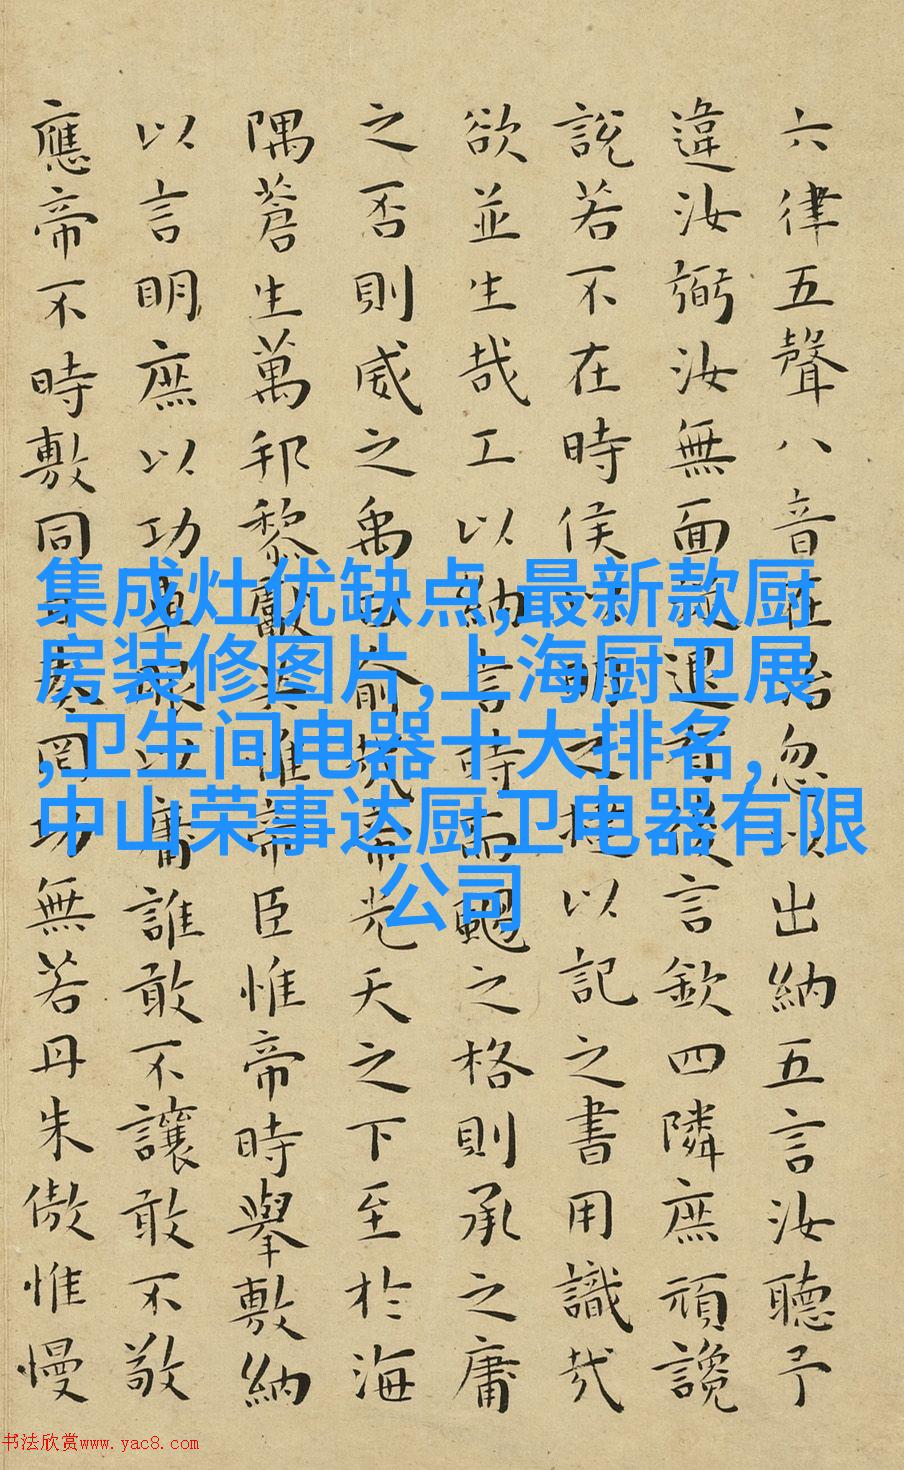 六律五聲八音在治忽以出納五言汝聽予
違汝弼汝無面從退有後言欽四隣庶頑讒
說若不在時侯以明之撻以記之書用識哉
欲並生哉工以納言時而颺之格則承之庸
之否則威之禹曰俞哉帝光天之下至於海
隅蒼生萬邦黎獻共惟帝臣惟帝時舉敷納
以言明庶以功車服以庸誰敢不讓敢不敬
應帝不時敷同日奏罔功無若丹朱傲惟慢
集成灶优缺点,最新款厨
房装修图片,上海厨卫展
,卫生间电器十大排名,
中山荣事达厨卫电器有限
公司
书法欣赏www.yac8.com